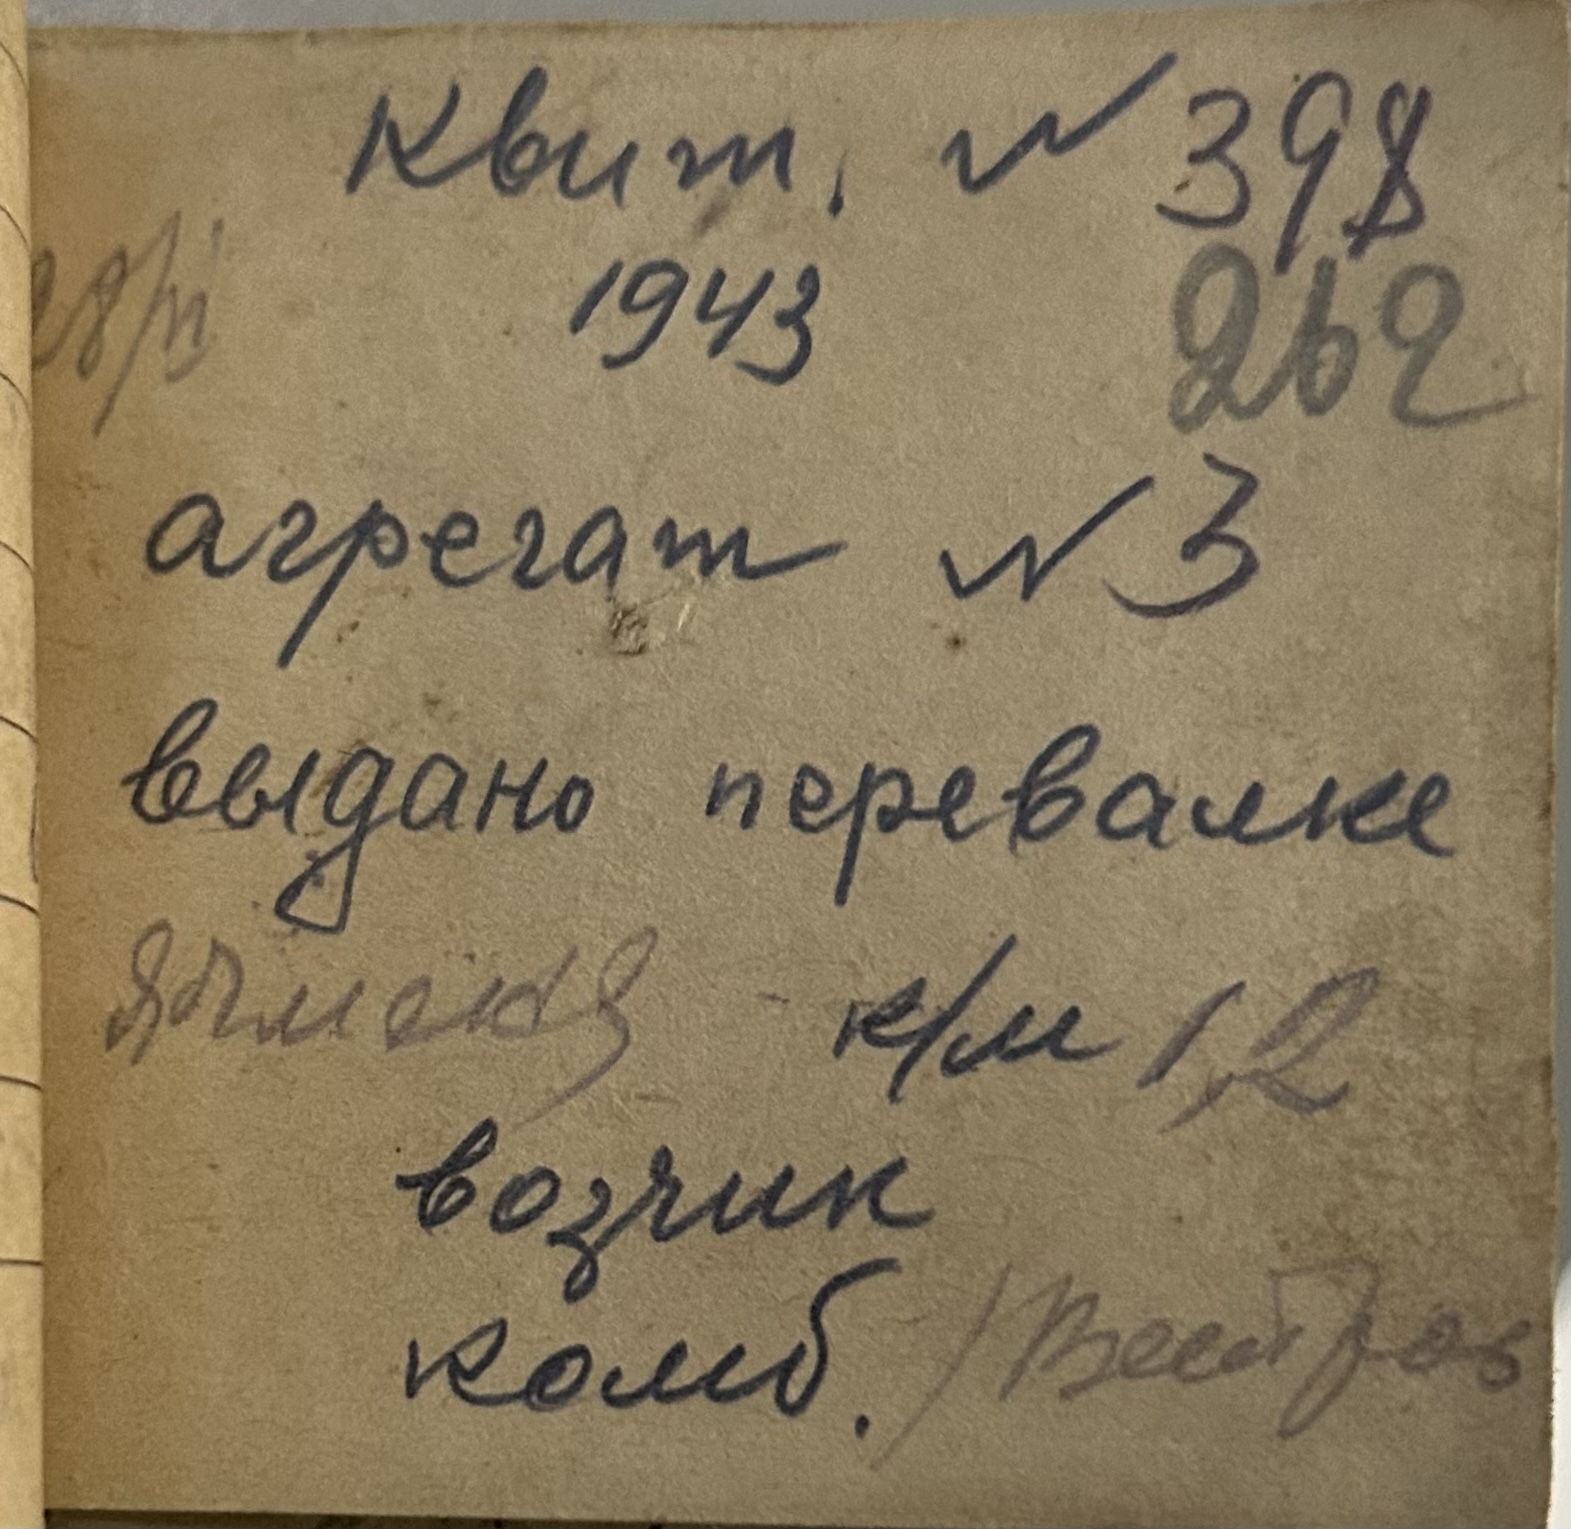 Квит. № 398
1943 262
агрегат № 3
выдано перевалке
Ячменя к/м 12
возчик
комб.